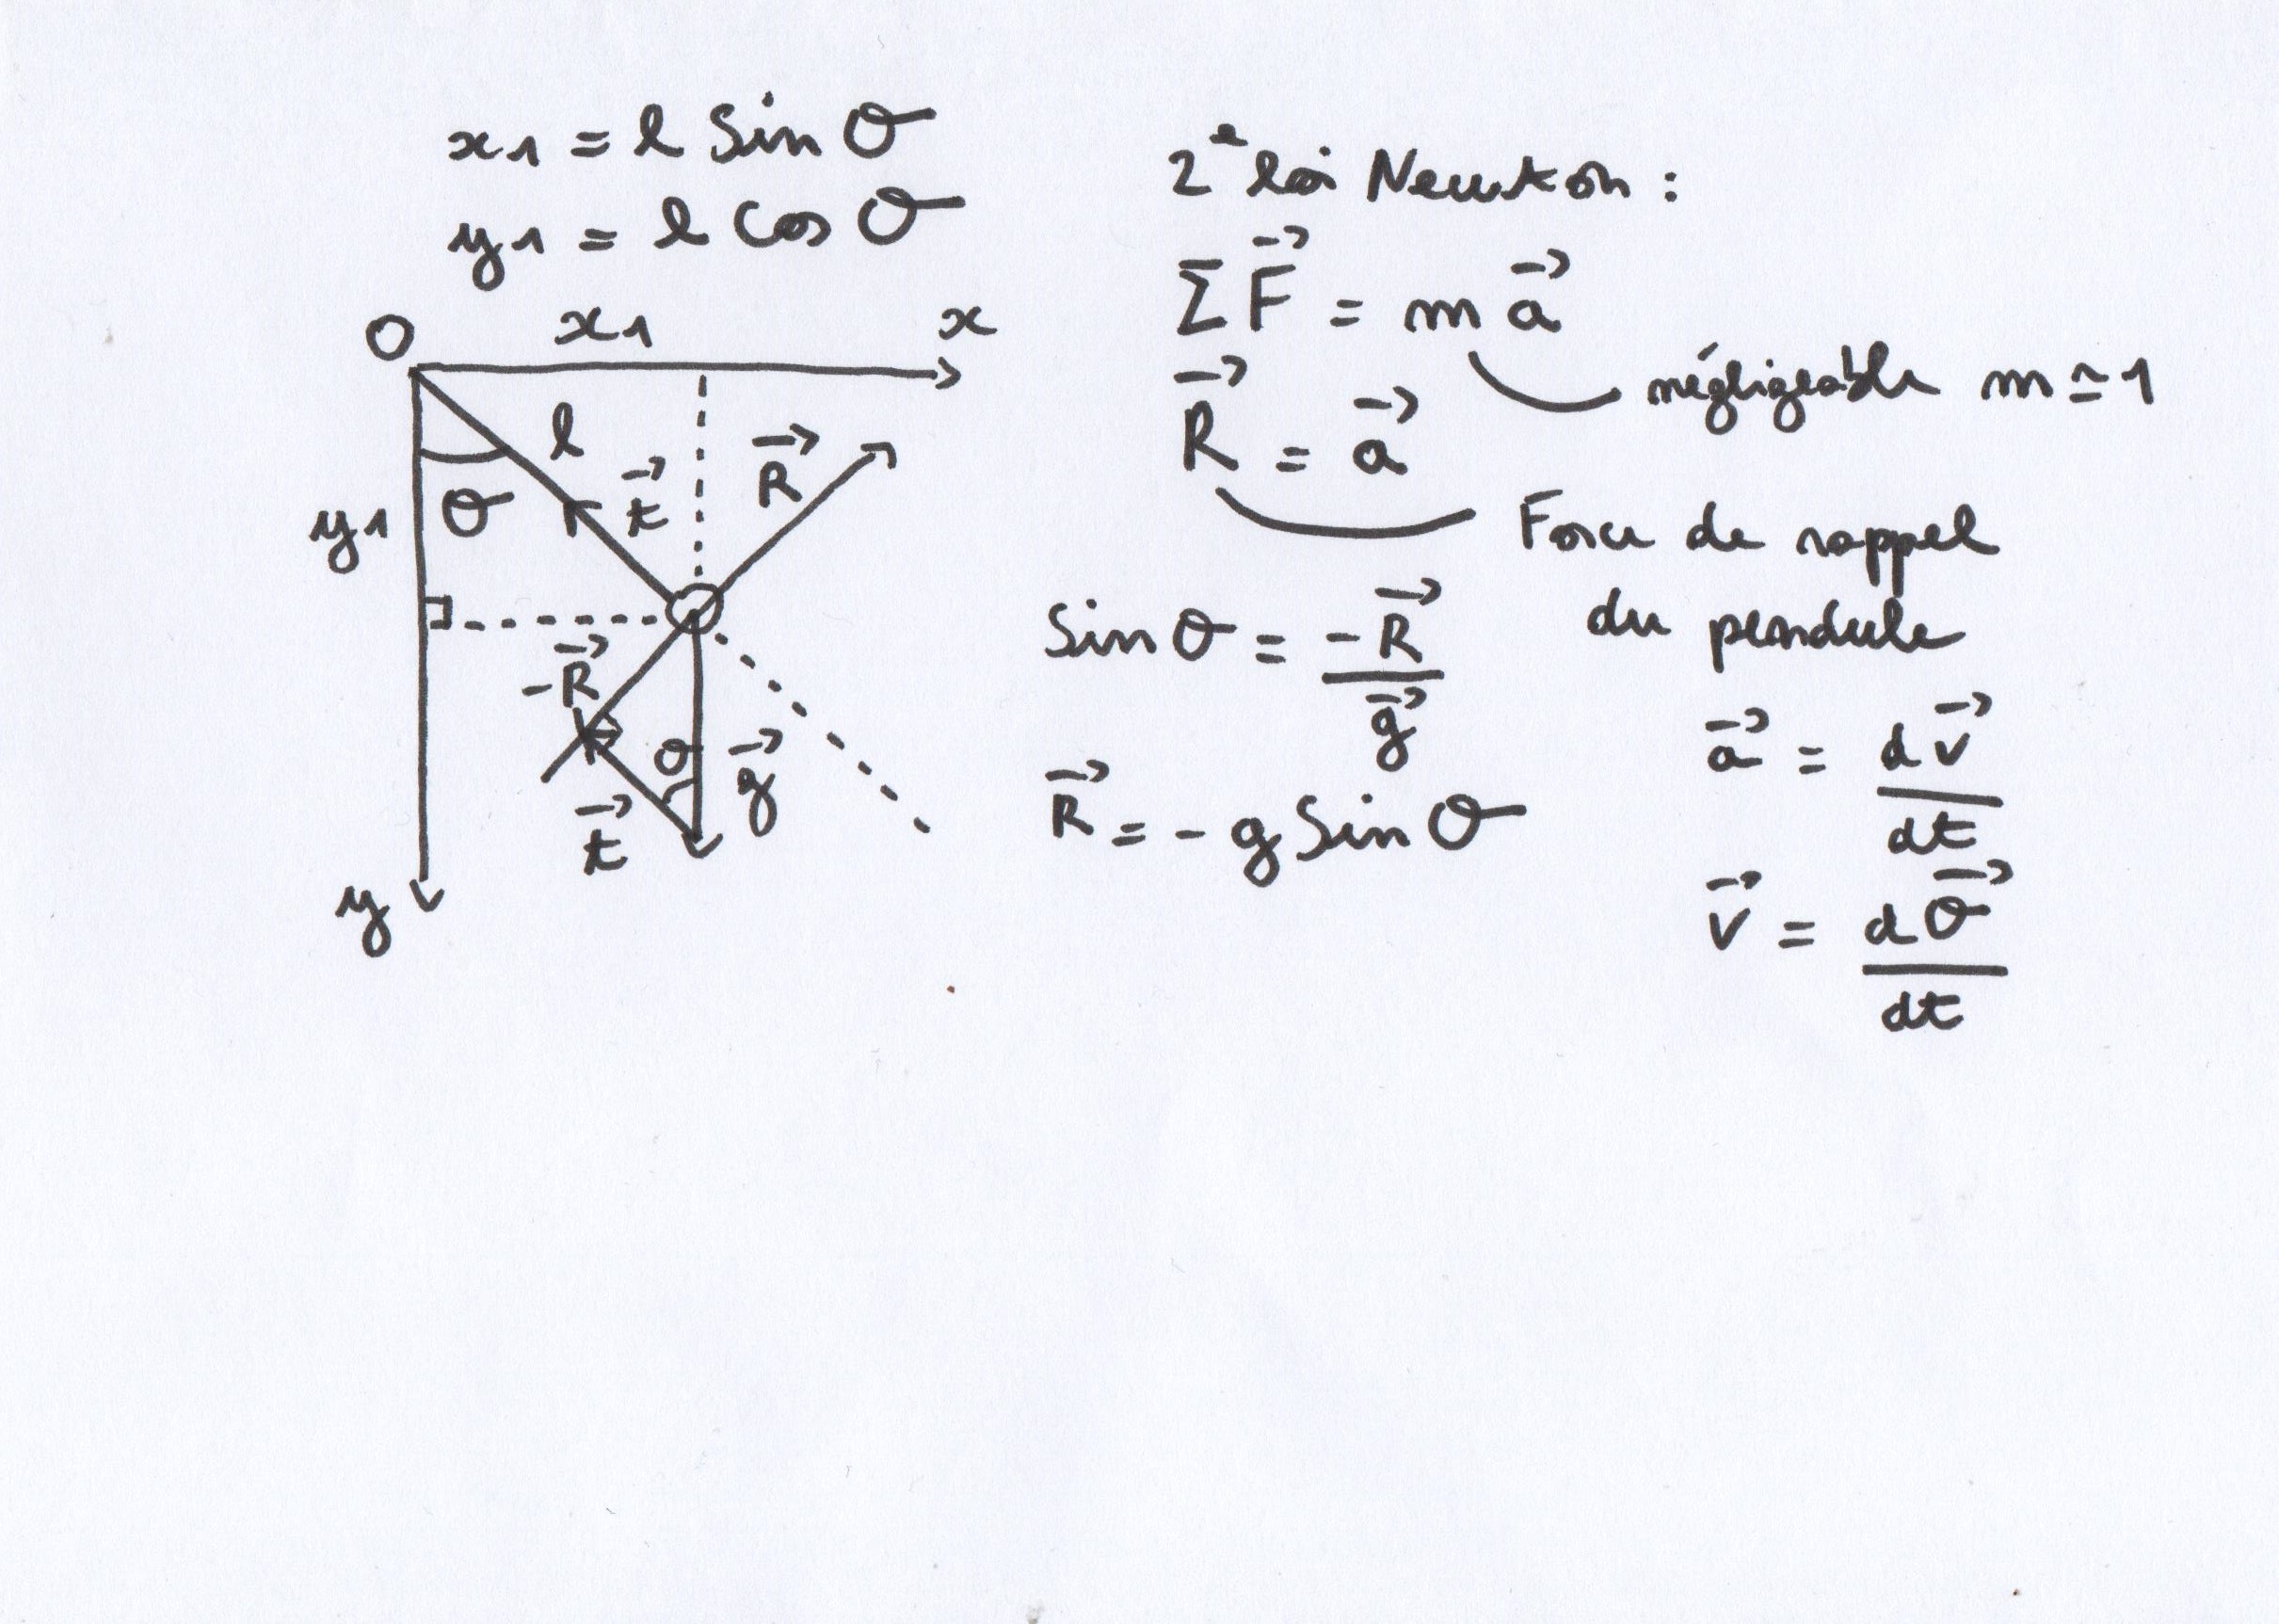 x1 = l Sin θ
y1 = l Cos θ
O
x1
x
l
θ
y1
t⃗
R⃗
-R⃗
θ
g⃗
t⃗
y
2e loi Newton :
ΣF⃗ = m a⃗
négligeable m ≃ 1
R⃗ = a⃗
Force de rappel
du pendule
Sin θ = -R⃗ / g⃗
R⃗ = - g Sin θ
a⃗ = dv⃗ / dt
v⃗ = dθ⃗ / dt